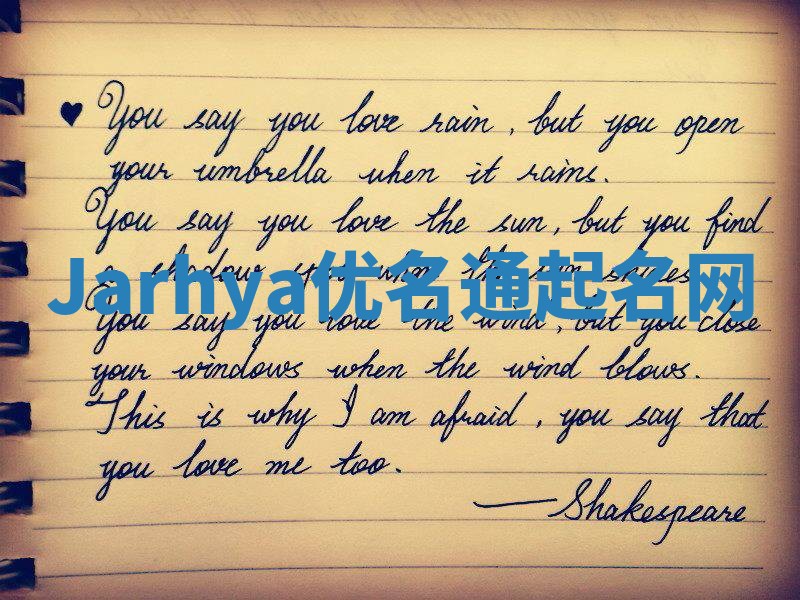 ♥ You say you love rain, but you open
your umbrella when it rains.
You say you love the sun, but you find
a shadow spot when the sun shines.
Jarhya优名通起名网
You say you love the wind, but you close
your windows when the wind blows.
This is why I am afraid, you say that
you love me too.
—Shakespeare